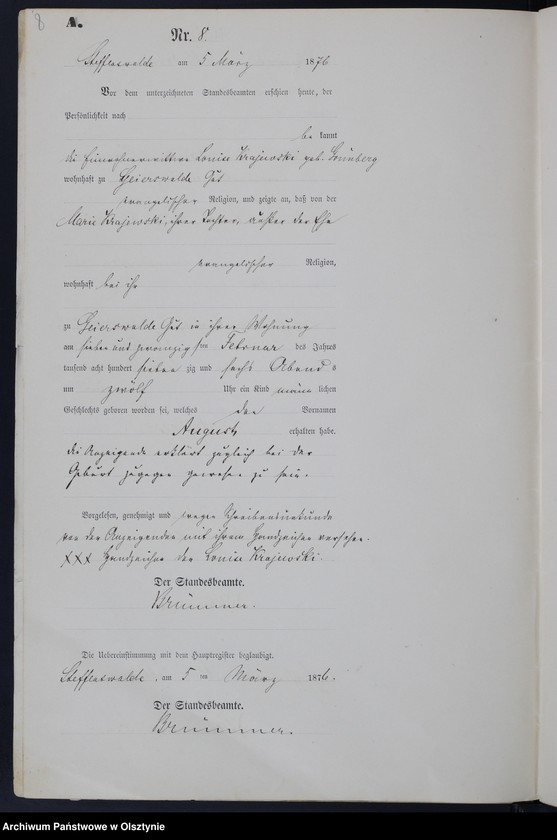 8
A.
Nr. 8.
Steffenswalde am 5 März 1876
Vor dem unterzeichneten Standesbeamten erschien heute, der
Persönlichkeit nach
be kannt
die Einwohnerwittwe Louise Krajewski geb. Grünberg
wohnhaft zu Geierswalde Gut
evangelischer Religion, und zeigte an, daß von der
Marie Krajewski, ihrer Tochter, außer der Ehe
evangelischer Religion,
wohnhaft bei ihr
zu Geierswalde Gut in ihrer Wohnung
am sieben und zwanzigsten Februar des Jahres
tausend acht hundert sieben zig und sechs Abend s
um zwölf Uhr ein Kind männ lichen
Geschlechts geboren worden sei, welches den Vornamen
August erhalten habe.
die Anzeigende erklärt zugleich bei der
Geburt zugegen gewesen zu sein.
Vorgelesen, genehmigt und wegen Schreibensunkunde
von der Anzeigenden mit ihrem Handzeichen versehen.
XXX Handzeichen der Louise Krajewski.
Der Standesbeamte.
Brümmer.
Die Uebereinstimmung mit dem Hauptregister beglaubigt.
Steffenswalde, am 5 ten März 1876.
Der Standesbeamte.
Brümmer.
Archiwum Państwowe w Olsztynie